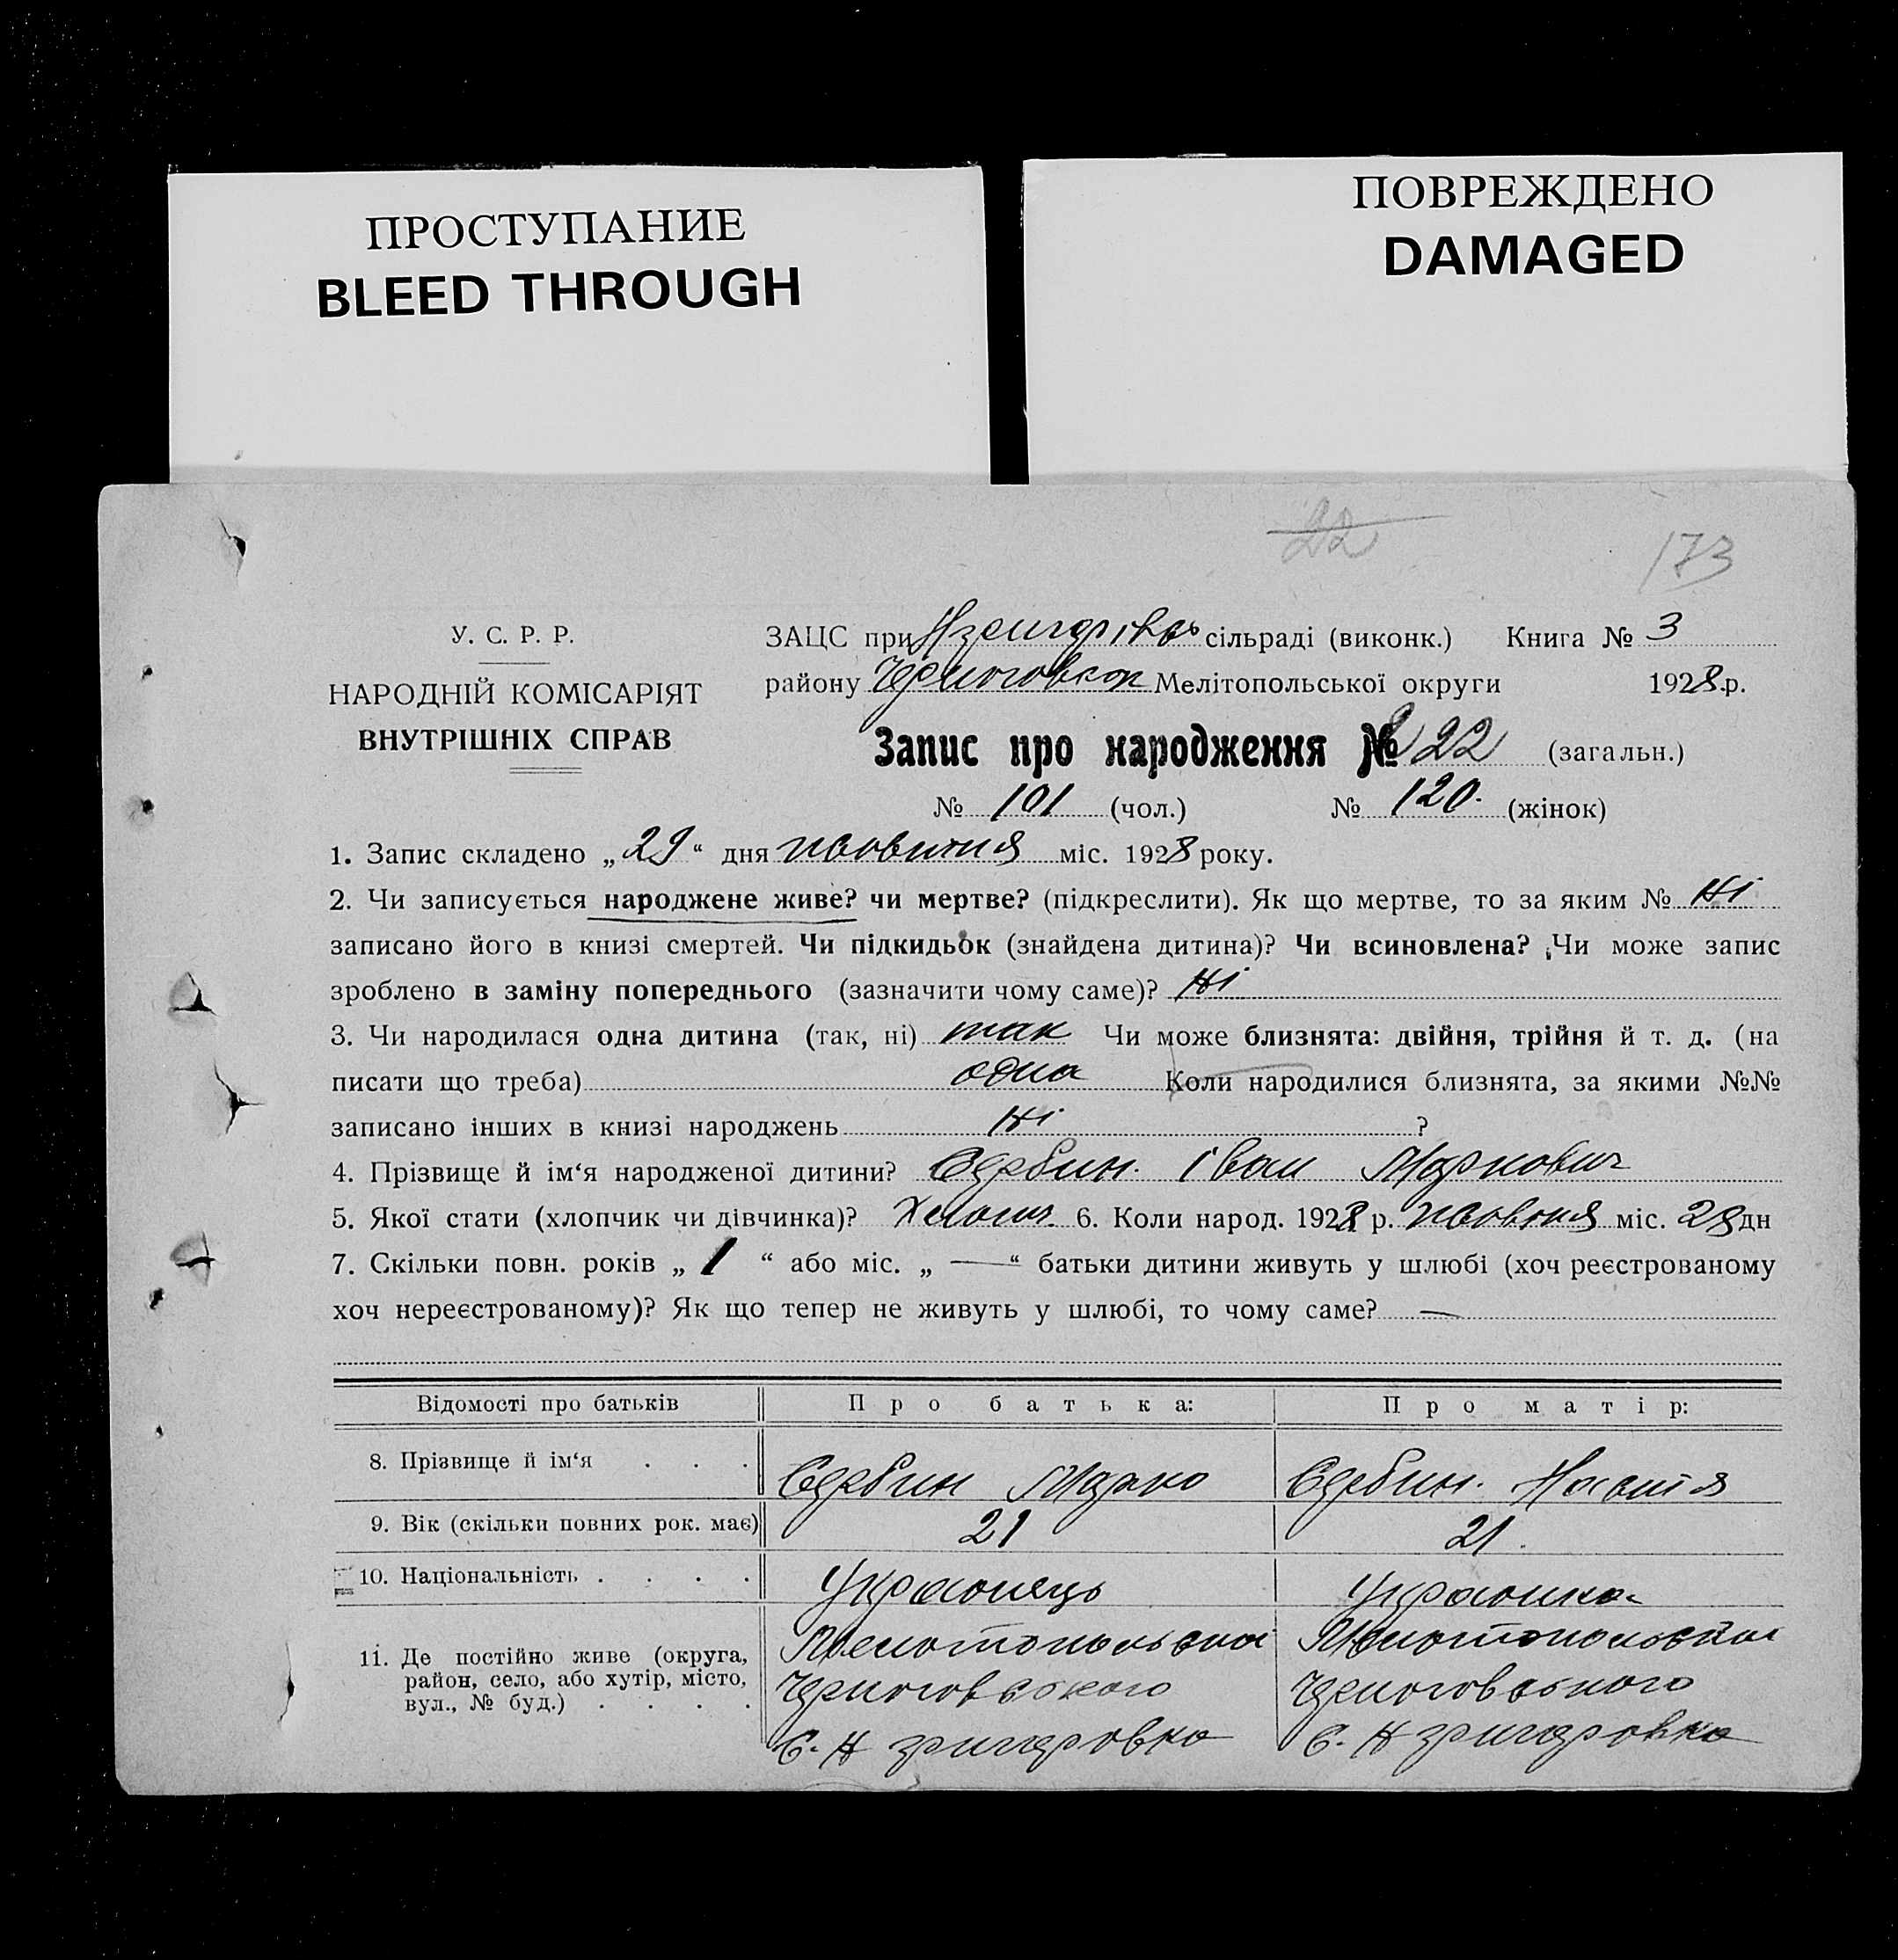 ПРОСТУПАНИЕ
BLEED THROUGH
ПОВРЕЖДЕНО
DAMAGED
22
173
У. С. Р. Р.
НАРОДНІЙ КОМІСАРІЯТ
ВНУТРІШНІХ СПРАВ
ЗАЦС при сільраді (виконк.) Книга № 3
району Мелітопольської округи 1928 р.
Запис про народження № 222 (загальн.)
№ 101 (чол.) № 120. (жінок)
1. Запис складено „29“ дня жовтня міс. 1928 року.
2. Чи записується народжене живе? чи мертве? (підкреслити). Як що мертве, то за яким № Ні
записано його в книзі смертей. Чи підкидьок (знайдена дитина)? Чи всиновлена? Чи може запис
зроблено в заміну попереднього (зазначити чому саме)? Ні
3. Чи народилася одна дитина (так, ні) так Чи може близнята: двійня, трійня й т. д. (на
писати що треба) одна Коли народилися близнята, за якими №№
записано інших в книзі народжень Ні ?
4. Прізвище й ім‘я народженої дитини? Сербин. Іван Маркович
5. Якої стати (хлопчик чи дівчинка)? 6. Коли народ. 1928 р. жовтня міс. 28 дн
7. Скільки повн. років „ 1 “ або міс. „ — “ батьки дитини живуть у шлюбі (хоч реєстрованому
хоч нереєстрованому)? Як що тепер не живуть у шлюбі, то чому саме? —
Відомості про батьків Про батька: Про матір:
8. Прізвище й ім‘я . . . Сербин Марко Сербин. Настя
9. Вік (скільки повних рок. має) 21 21.
10. Національність . . . . Українець Українка
11. Де постійно живе (округа, район, село, або хутір, місто, вул., № буд.) . . . .
Мелітопольська Мелітопольська
Черноговського Черноговського
С. Н григоровка С. Н григоровка